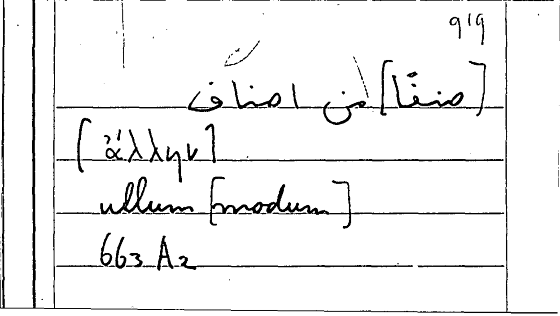 919
[صنفًا] من اصناف
[ἄλλην]
ullum [modum]
663 A2